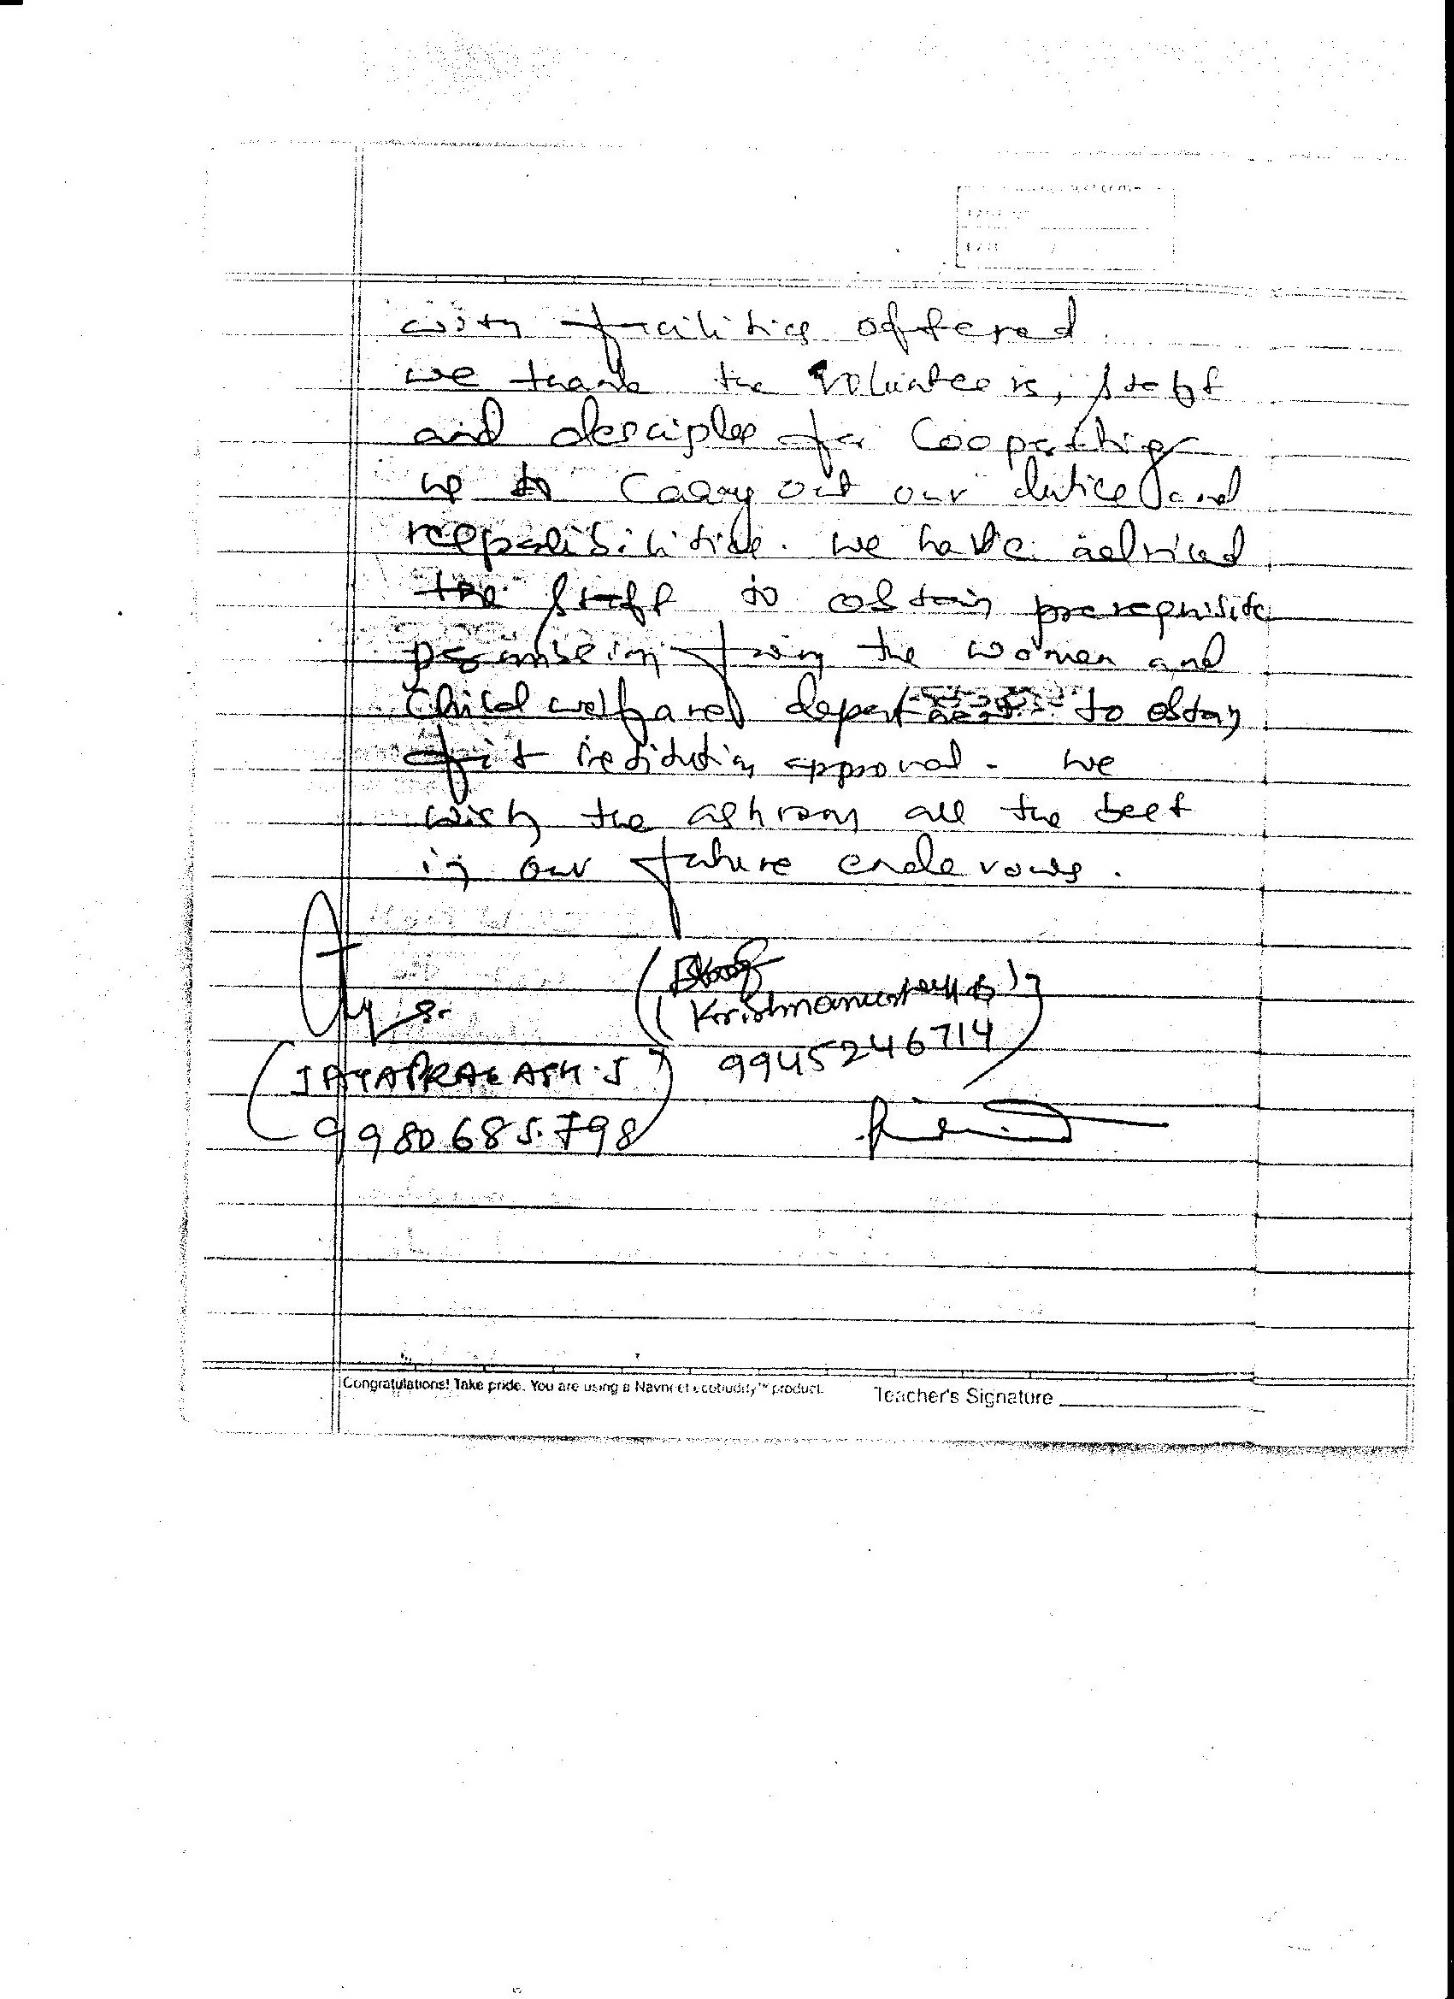 with facilities offered.
we thank the volunteers, staff
and desciples for Cooperating
us to carry out our duties and
responsibilities. we have advised
the staff to obtain prerequisite
permission from the women and
child welfare department to obtain
fit institution approval. we
wish the ashram all the best
in our future endevours.
(Krishnamurthy
(JAYAPRAKASH.J) 9945246714
9980685798
Congratulations! Take pride. You are using a Navneet ecobuddy™ product. Teacher's Signature